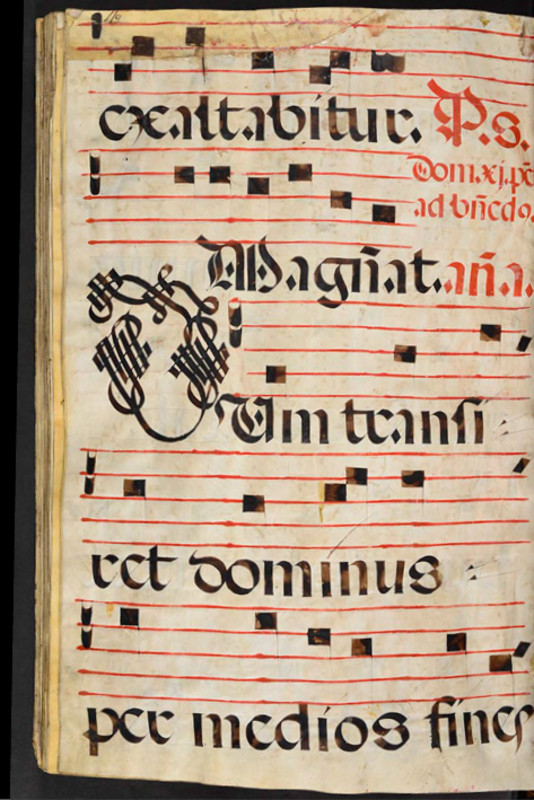 exaltabitur. P.s.
Dom.xj.pẽ
ad bñedꝰ.
Magñat. añ.a.
Cum transi
ret dominus
per medios fines